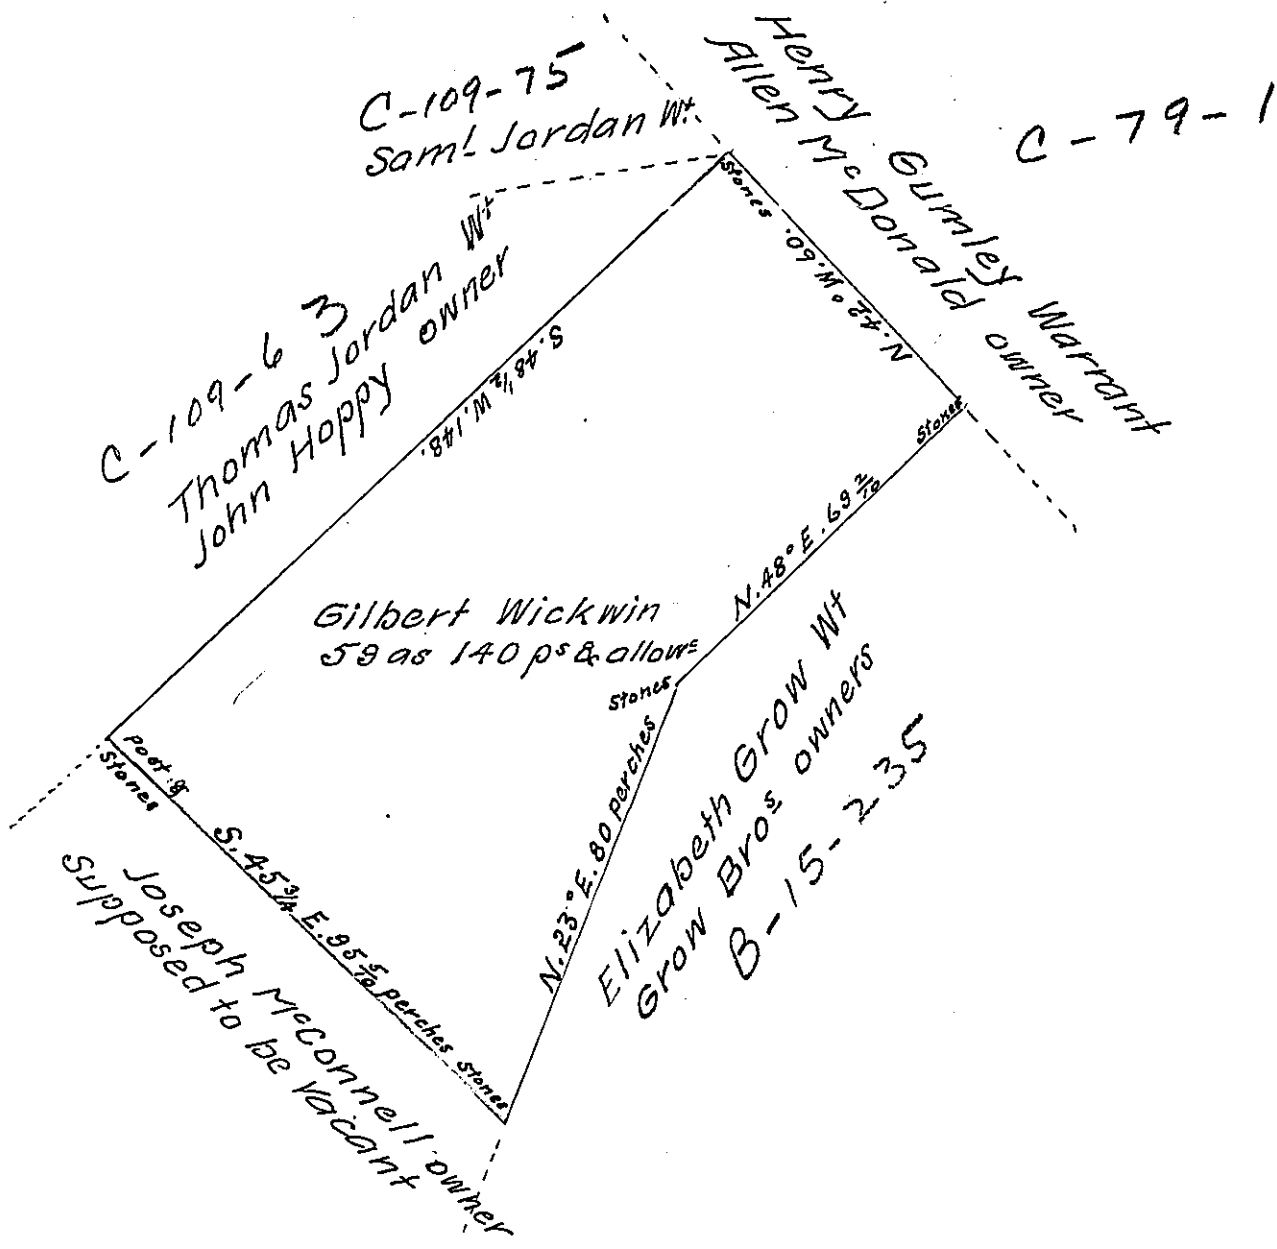 C-109-75
Sam! Jordan Wt.
Henry Gumley Warrant
Allen McDonald owner
C-79-1
C-109-63
Thomas Jordan Wt
John Hoppy owner
Stones
N.42° W.60.
S.48½ W.148.
Stones
N.48° E.69 2/10
Gilbert Wickwin
59 as 140 ps & allowe
Stones
N.23° E.80 perches
Elizabeth Grow Wt
Grow Bros owners
B-15-235
Post &
Stones
S.45¾ E.95 5/10 perches
Stones
Joseph McConnell owner
Supposed to be vacant